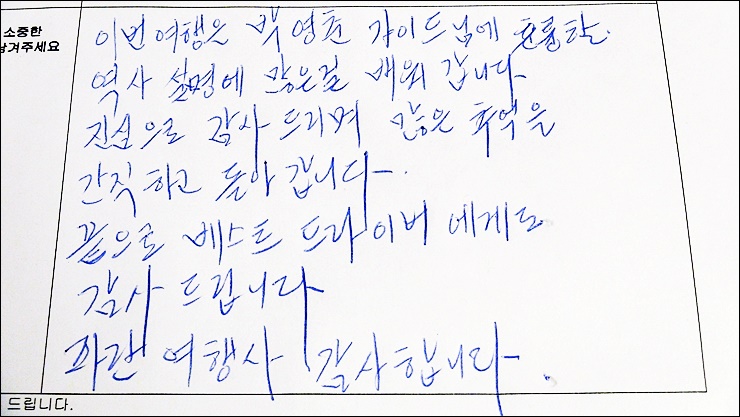 소중한
남겨주세요
이번 여행은 박영춘 가이드님에 훌륭한
역사 설명에 많은걸 배워 갑니다
진심으로 감사 드리며 많은 추억을
간직하고 돌아 갑니다.
끝으로 베스트 드라이버 에게도
감사 드립니다
파란 여행사 감사합니다.
드립니다.